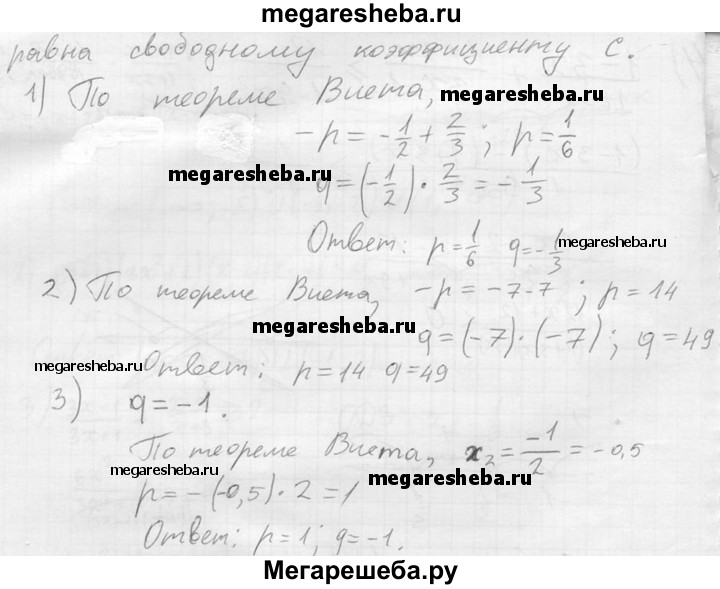 megaresheba.ru
равна свободному коэффициенту с.
1) По теореме Виета,
megaresheba.ru
-p = -1/2 + 2/3; p = 1/6
megaresheba.ru
q = (-1/2) · 2/3 = -1/3
Ответ: p = 1/6 q = -1/3
megaresheba.ru
2) По теореме Виета, -p = -7-7; p = 14
megaresheba.ru
q = (-7) · (-7); q = 49
megaresheba.ru
Ответ: p = 14 q = 49
3) q = -1.
По теореме Виета, x₂ = -1/2 = -0,5
megaresheba.ru
megaresheba.ru
p = -(-0,5) · 2 = 1
Ответ: p = 1; q = -1.
Мегарешеба.ру